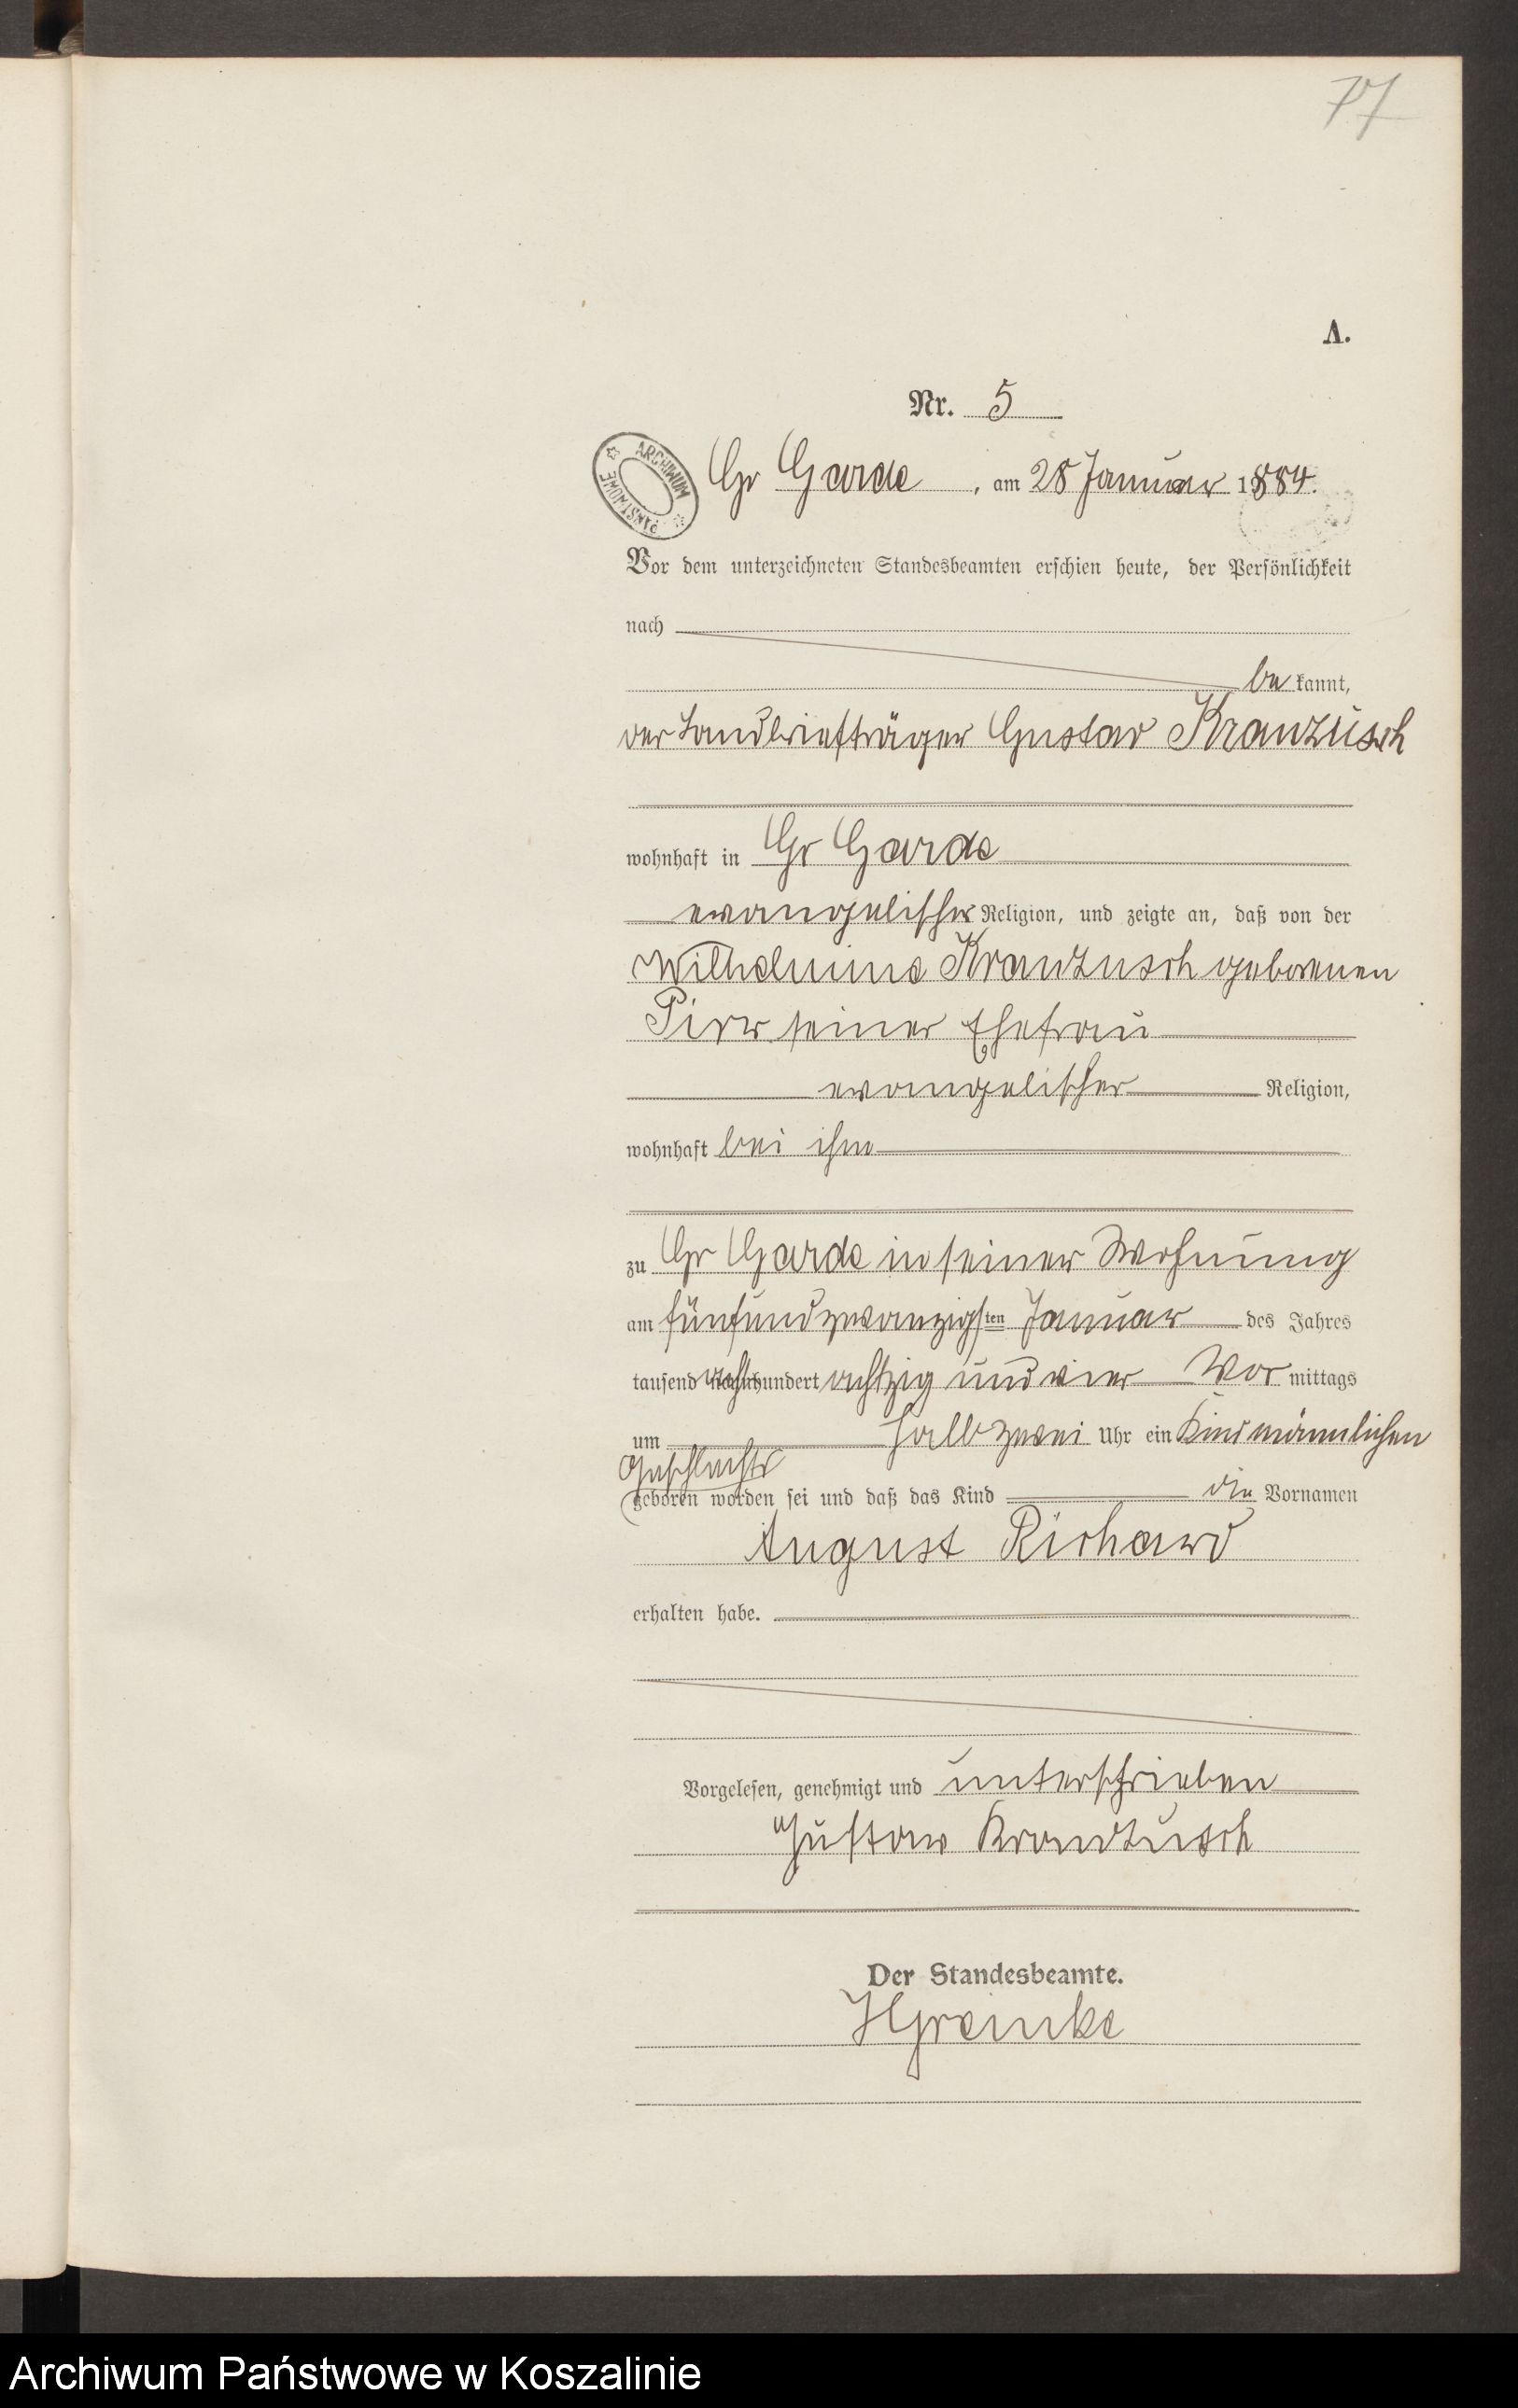 77
A.
Nr. 5
ARCHIWUM PAŃSTWOWE
Gr Garde, am 28 Januar 1884.
Vor dem unterzeichneten Standesbeamten erschien heute, der Persönlichkeit
nach
be kannt,
der Landbriefträger Gustav Kranzusch
wohnhaft in Gr Garde
evangelischer Religion, und zeigte an, daß von der
Wilhelmine Kranzusch geborenen
Pirr seiner Ehefrau
evangelischer Religion,
wohnhaft bei ihm
zu Gr Garde in seiner Wohnung
am fünfundzwanzigsten Januar des Jahres
tausend acht hundert achtzig und vier Vor mittags
um halb zwei Uhr ein Kind männlichen
Geschlechts
geboren worden sei und daß das Kind die Vornamen
August Richard
erhalten habe.
Vorgelesen, genehmigt und unterschrieben
Gustav Krandzusch
Der Standesbeamte.
HGreinke
Archiwum Państwowe w Koszalinie